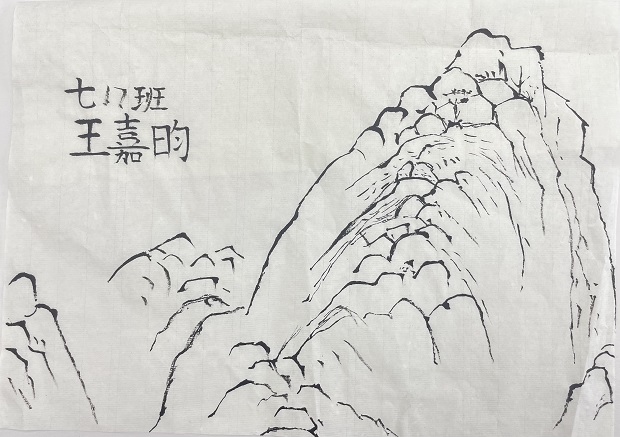 七17班
王嘉昀